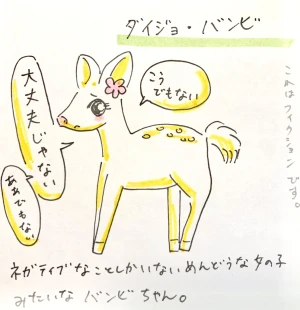 ダイジョ・バンビ
こう
でもない
大丈夫じゃない
ああでもない
これはフィクションです。
ネガティブなことしかいないめんどうな女の子
みたいな バンビちゃん。